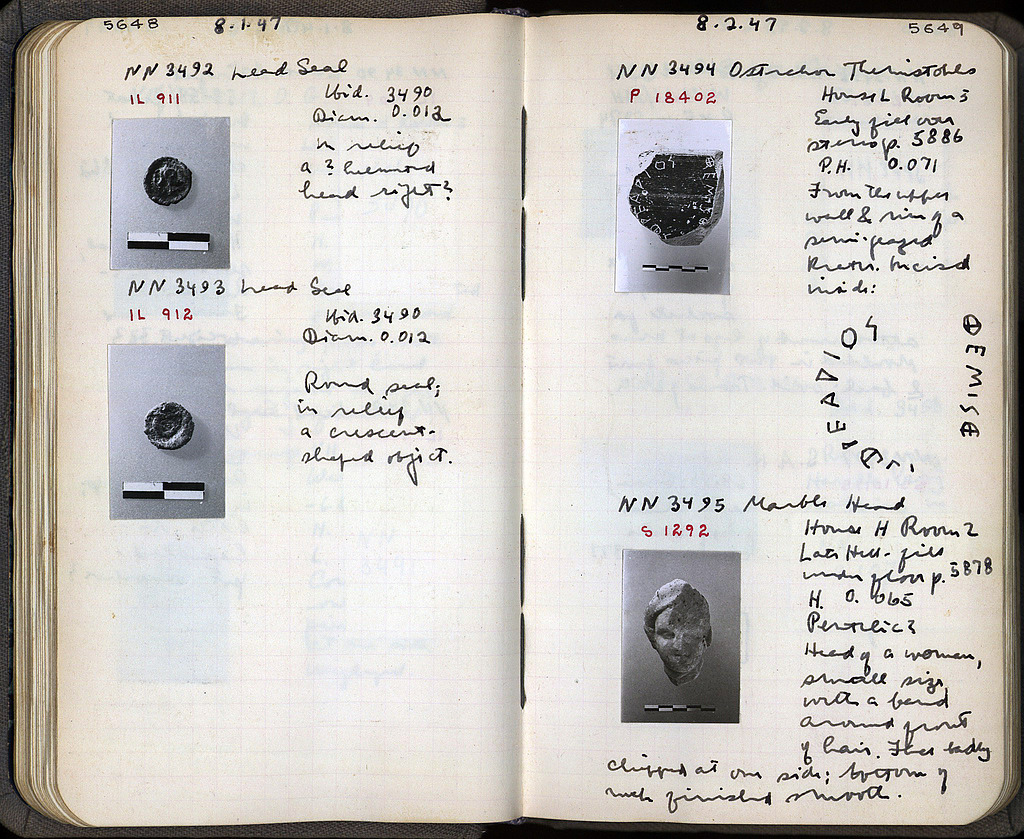 5648 8.1.47
NN 3492 Lead Seal
IL 911
Ibid. 3490
Diam. 0.012
In relief
a ? helmeted
head right?
NN 3493 Lead Seal
IL 912
Ibid. 3490
Diam. 0.012
Round seal;
in relief
a crescent-
shaped object.
8.2.47 5649
NN 3494 Ostrakon Themistokles
P 18402
House L Room 3
Early fill over
p. 5886
P.H. 0.071
From the upper
wall & rim of a
semi-glazed
Krater. Incised
inside:
NN 3495 Marble Head
S 1292
House H Room 2
Late Hell. fill
under floor p. 5878
H. 0.065
Pentelic
Head of a woman,
small size,
with a band
around front
of hair. Face badly
chipped at one side; bottom of
neck finished smooth.